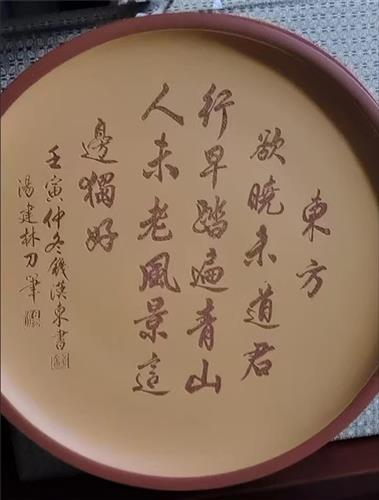 東方
欲曉未道君
行早踏遍青山
人未老風景這
邊獨好
壬寅仲冬錢漢東書
湯建林刀筆